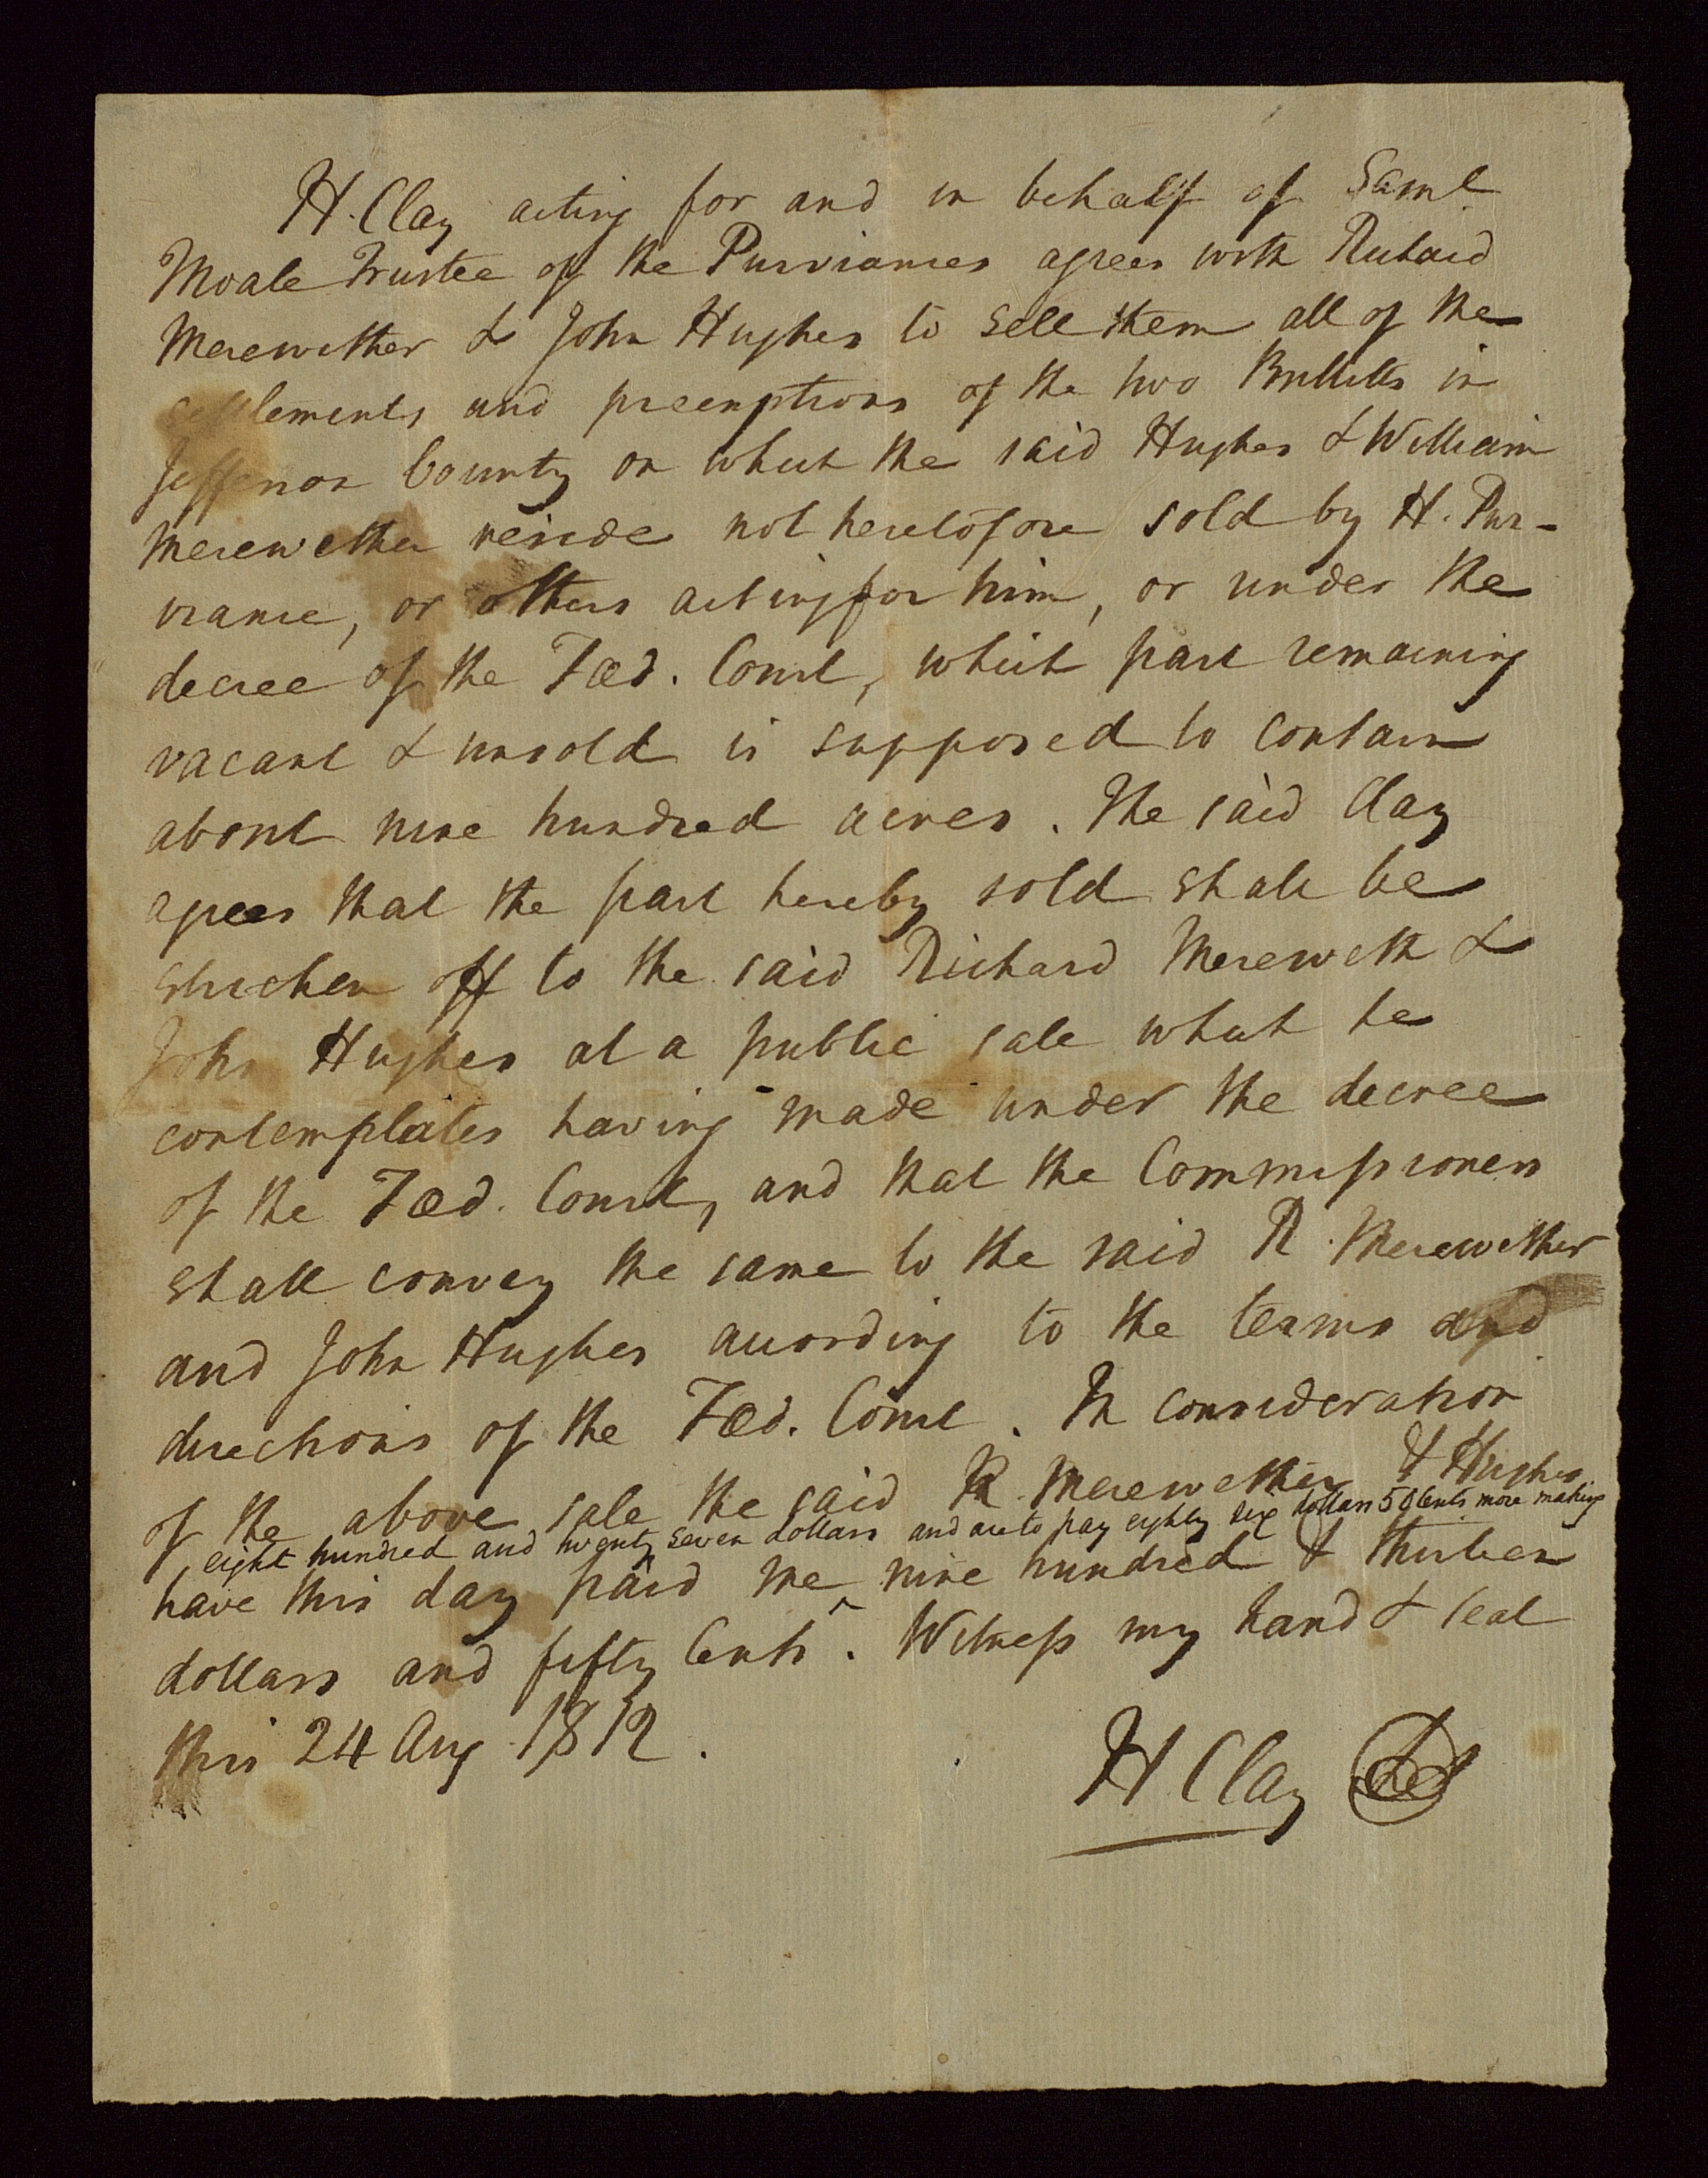 H. Clay acting for and in behalf of Saml
Moale Trustee of the Purviances agrees with Richard
Merewether & John Hughes to sell them all of the
settlements and preemptions of the two Bullitts in
Jefferson County on which the said Hughes & William
Merewether reside not heretofore sold by H. Pur-
viance, or others acting for him, or under the
decree of the Fœd. Court, which part remaining
vacant & unsold is supposed to contain
about nine hundred acres. The said Clay
agrees that the part hereby sold shall be
stricken off to the said Richard Mereweth &
John Hughes at a public sale which he
contemplates having made under the decree
of the Fœd. Court, and that the Commissioners
shall convey the same to the said R. Merewether
and John Hughes according to the terms and
directions of the Fœd. Court. In consideration
of the above sale the said R. Merewether & Hughes
eight hundred and twenty seven dollars and are to pay eighty six dollars 50 Cents more making
have this day paid me nine hundred & thirteen
dollars and fifty Cents. Witness my hand & seal
this 24 Aug 1812.
H Clay